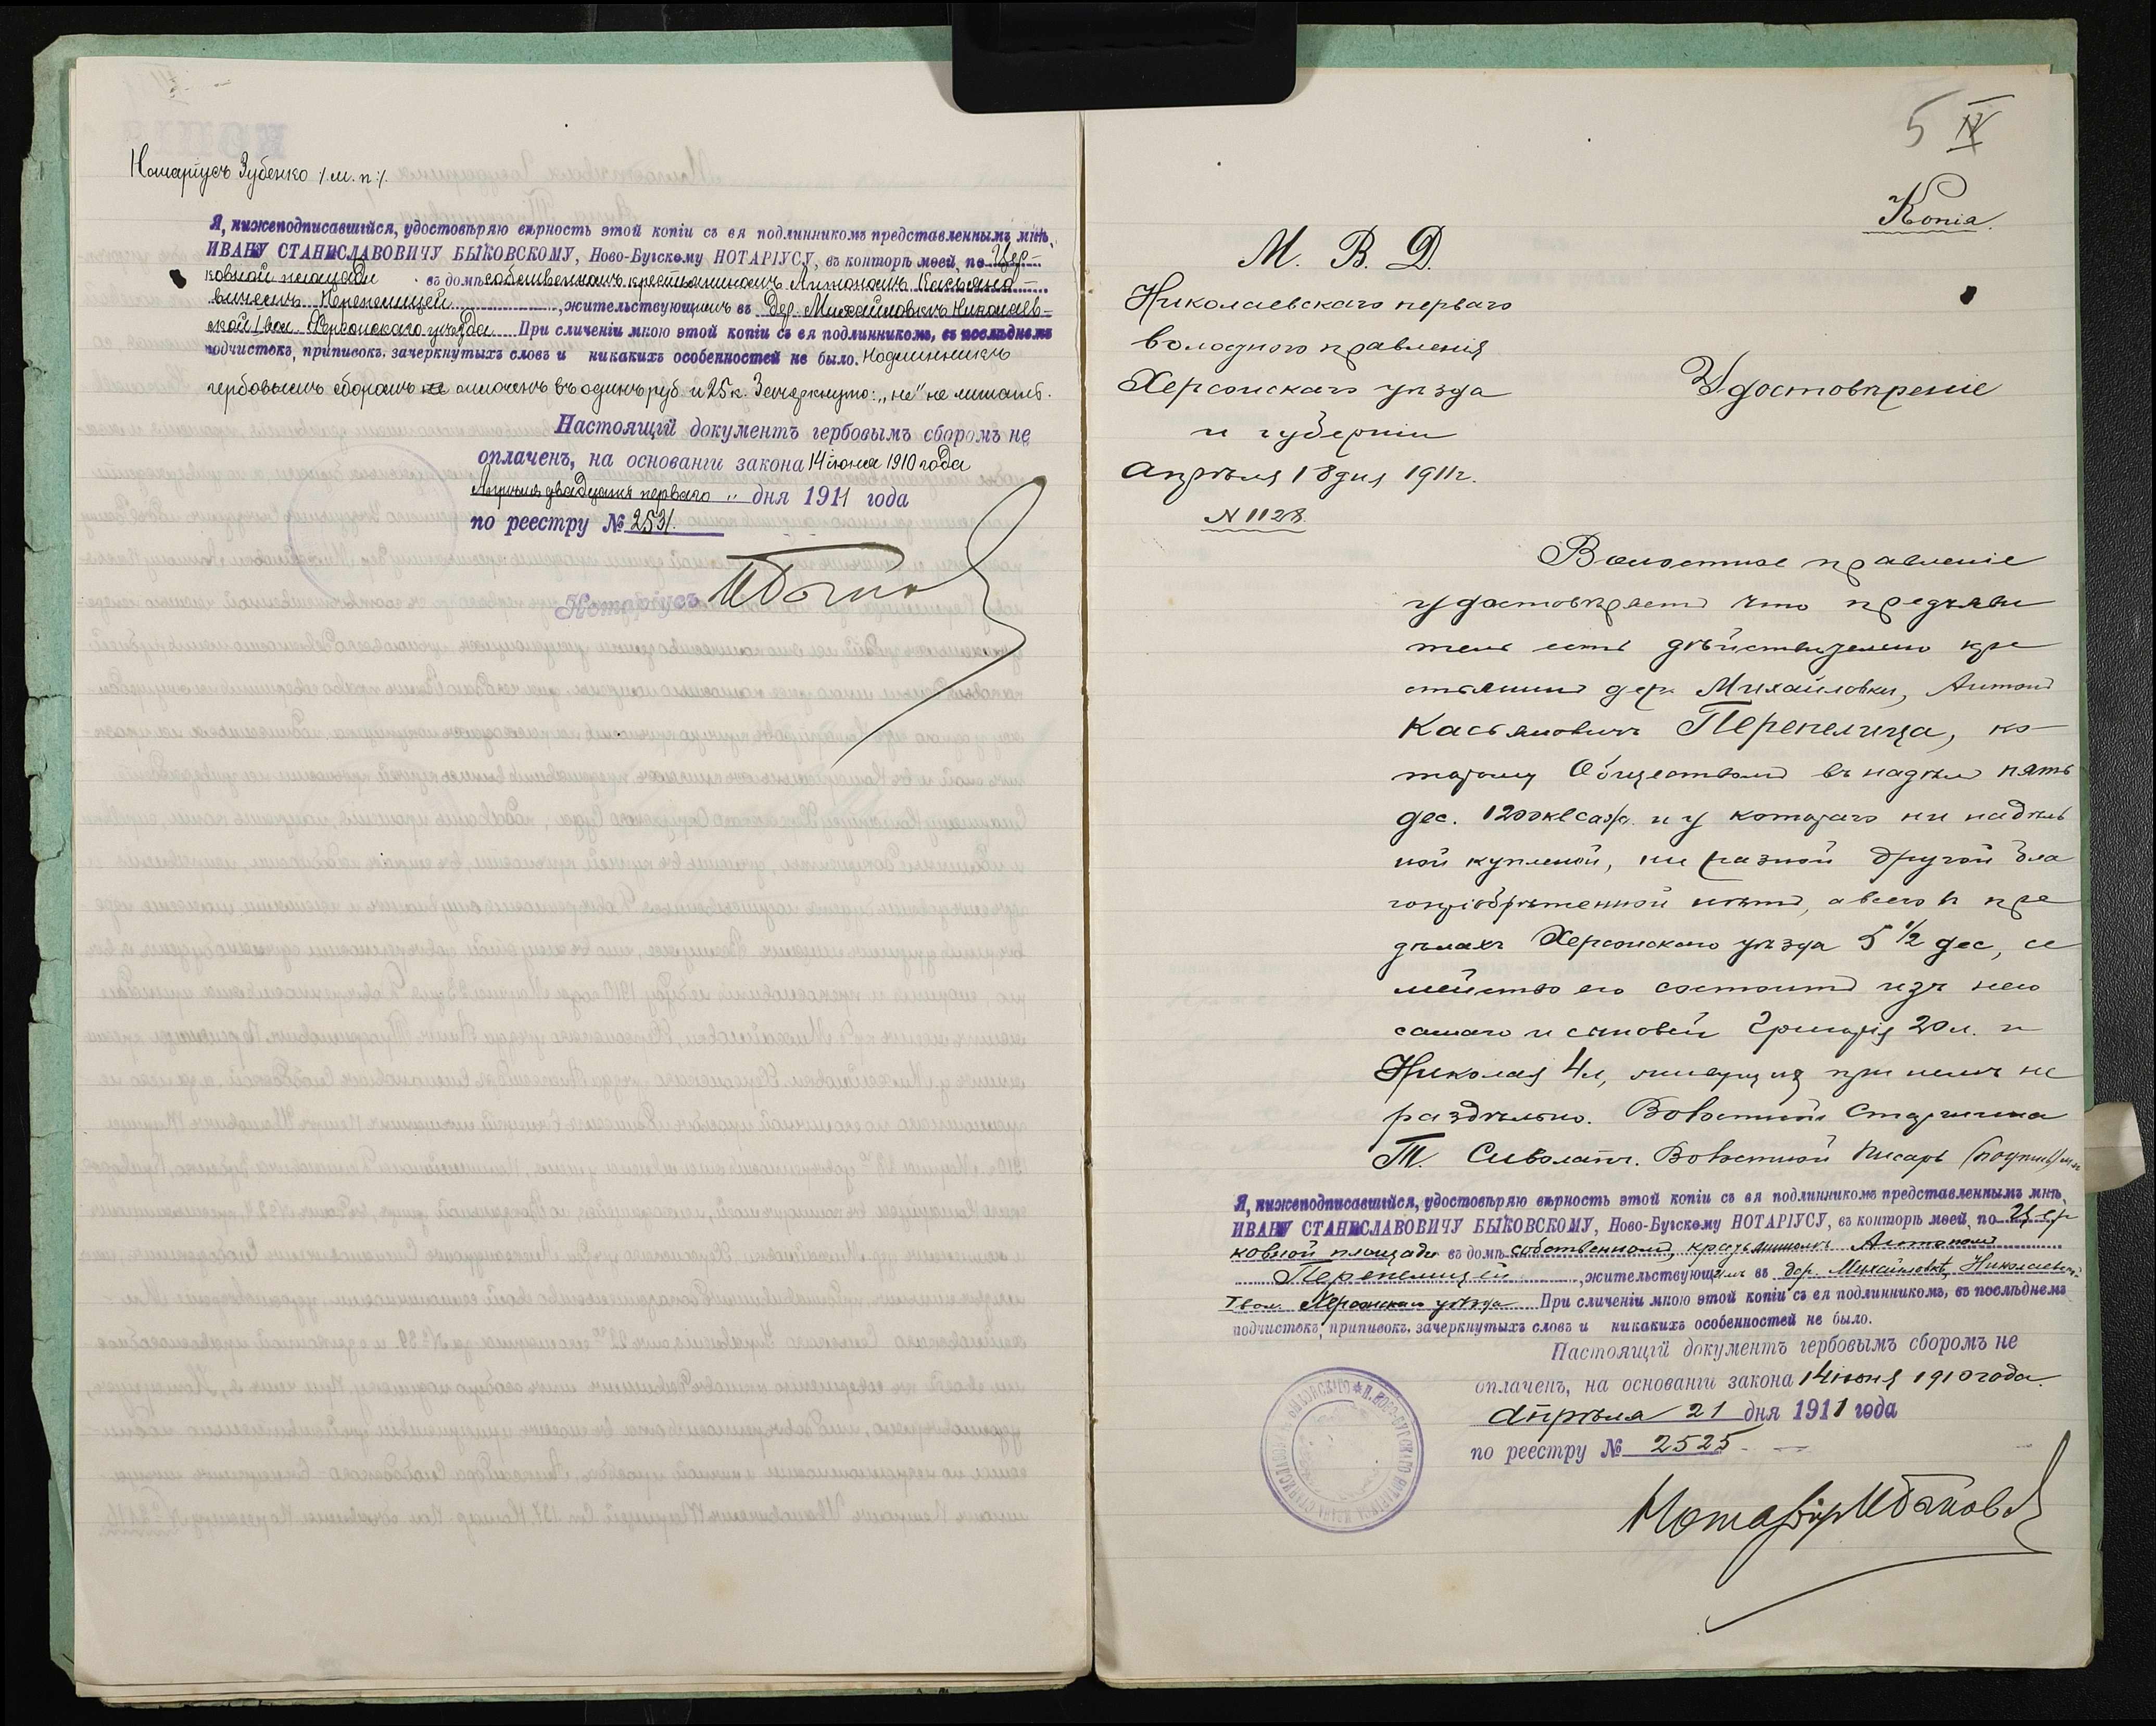 Нотаріусъ Зубенко /м.п./.
Я, нижеподписавшійся, удостовѣряю вѣрность этой копіи съ ея подлинникомъ представленнымъ мнѣ,
ИВАНУ СТАНИСЛАВОВИЧУ БЫКОВСКОМУ, Ново-Бугскому НОТАРІУСУ, въ конторѣ моей, по Цер-
ковной площади въ домѣ собственномъ, крестьяниномъ Антономъ Касьяно-
вичемъ Перепелицей, жительствующимъ въ дер. Михайловкѣ Николаев-
ской I вол. Херсонскаго уѣзда При сличеніи мною этой копіи съ ея подлинникомъ, въ послѣднемъ
подчистокъ, приписокъ, зачеркнутыхъ словъ и никакихъ особенностей не было. Подлинникъ
гербовымъ сборомъ не оплоченъ въ одинъ руб. и 25 к. Зачеркнуто: „не" не читать.
Настоящій документъ гербовымъ сборомъ не
оплаченъ, на основаніи закона 14 іюня 1910 года
Апрѣля двадцать перваго „ дня 1911 года
по реестру № 2531.
Нотаріусъ
5 IV
Копія.
М. В. Д.
Николаевскаго перваго
волостного правленія
Херсонскаго уѣзда
и губерніи
Апрѣля 18 дня 1911 г.
N 1128.
Удостовѣреніе
Волостное правленіе
удостовѣряетъ что предъяви
тель есть дѣйствительно кре
стьянинъ дер. Михайловки, Антонъ
Касьяновичъ Перепелица, ко-
торому Обществомъ въ надѣлъ пять
дес. 1200 кв саж. и у котораго ни надѣль
ной купленой, ни разной другой бла
гопріобрѣтенной нѣтъ, а всего въ пре
дѣлахъ Херсонскаго уѣзда 5 1/2 дес, се
мейство его состоитъ изъ него
самаго и сыновей Григорія 20 л. и
Николая 4 л, живущихъ при немъ не
раздѣльно. Волостной Старшина
Т. Сиволапъ. Волостной Писарь (подпись)
Я, нижеподписавшійся, удостовѣряю вѣрность этой копіи съ ея подлинникомъ представленнымъ мнѣ,
ИВАНУ СТАНИСЛАВОВИЧУ БЫКОВСКОМУ, Ново-Бугскому НОТАРІУСУ, въ конторѣ моей, по Цер
ковной площади въ домѣ собственномъ, крестьяниномъ Антономъ
Перепелицей, жительствующимъ въ дер. Михайловкѣ, Николаевской
I вол. Херсонскаго уѣзда При сличеніи мною этой копіи съ ея подлинникомъ, въ послѣднемъ
подчистокъ, приписокъ, зачеркнутыхъ словъ и никакихъ особенностей не было.
Настоящій документъ гербовымъ сборомъ не
оплаченъ, на основаніи закона 14 іюня 1910 года.
Апрѣля 21 дня 1911 года
по реестру № 2525